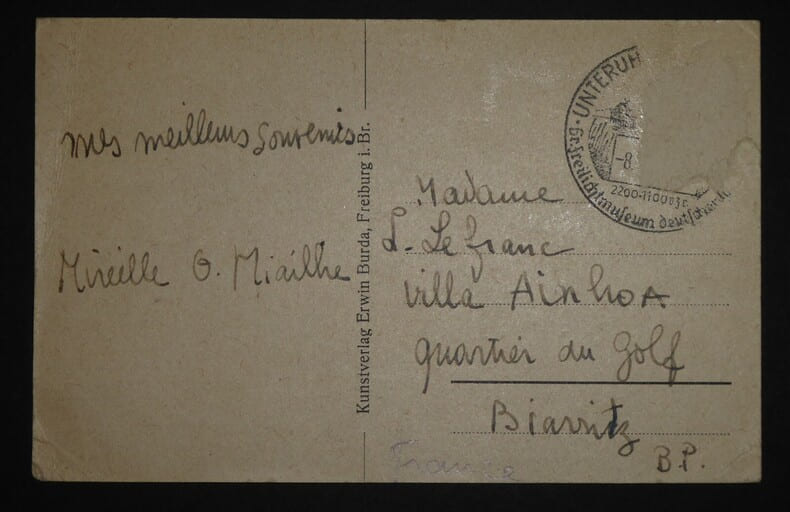 mes meilleurs souvenirs
Mireille O. Miailhe
Kunstverlag Erwin Burda, Freiburg i. Br.
UNTERUH
-8.
2200-1100 v. Zr.
Freilichtmuseum deutscher
Madame
L. Lefranc
Villa AinhoA
quartier du Golf
Biarritz
B.P.
France